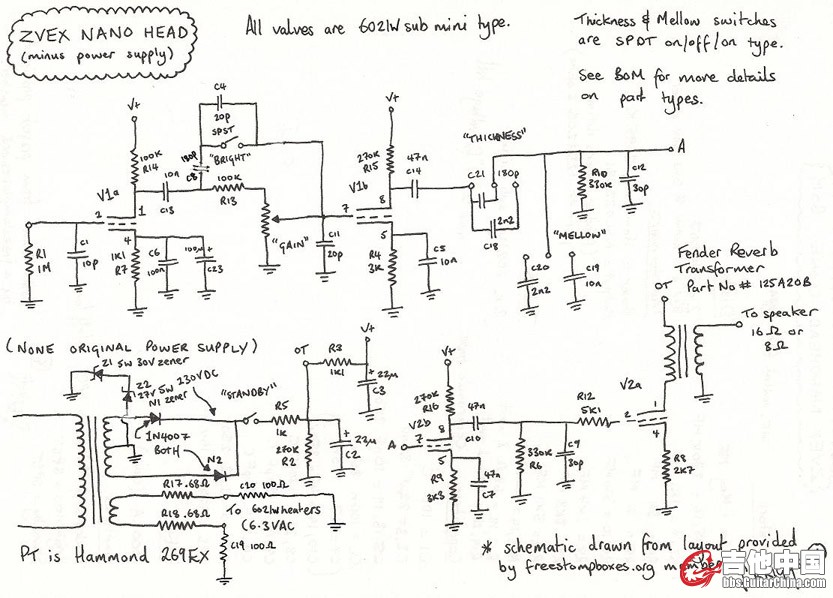 ZVEX NANO HEAD
(minus power supply)
All valves are 6021W sub mini type.
Thickness & Mellow switches
are SPDT on/off/on type.
See BOM for more details
on part types.
V+
100K
R14
V1a
2
1
4
R1
1M
C1
10p
1K1
R7
C6
100n
100µ
C23
10n
C13
C4
20p
SPST
"BRIGHT"
180p
C8
100K
R13
"GAIN"
C11
20p
V+
270K
R15
V1b
7
8
5
R4
3K
C5
10n
47n
C14
"THICKNESS"
C21
180p
2n2
C18
"MELLOW"
C20
2n2
C19
10n
R10
330K
C12
30p
A
Fender Reverb
Transformer
Part No # 125A20B
OT
To speaker
16Ω or
8Ω
(NONE ORIGINAL POWER SUPPLY)
Z1 5W 30V zener
Z2
27V 5W
zener
N1
230VDC
"STANDBY"
1N4007
BOTH
N2
R5
1K
OT
R3
1K1
V+
22µ
C3
270K
R2
22µ
C2
R17 .68Ω
R18 .68Ω
C20 100Ω
To 6021W heaters
(6.3VAC
C19 100Ω
PT is Hammond 269EX
V+
270K
R16
V2b
A
7
8
5
R9
3K3
47n
C7
47n
C10
330K
R6
C9
30p
R12
5K1
V2a
2
1
4
R8
2K7
* schematic drawn from layout provided
by freestompboxes.org member
吉他中国
bbs.GuitarChina.com